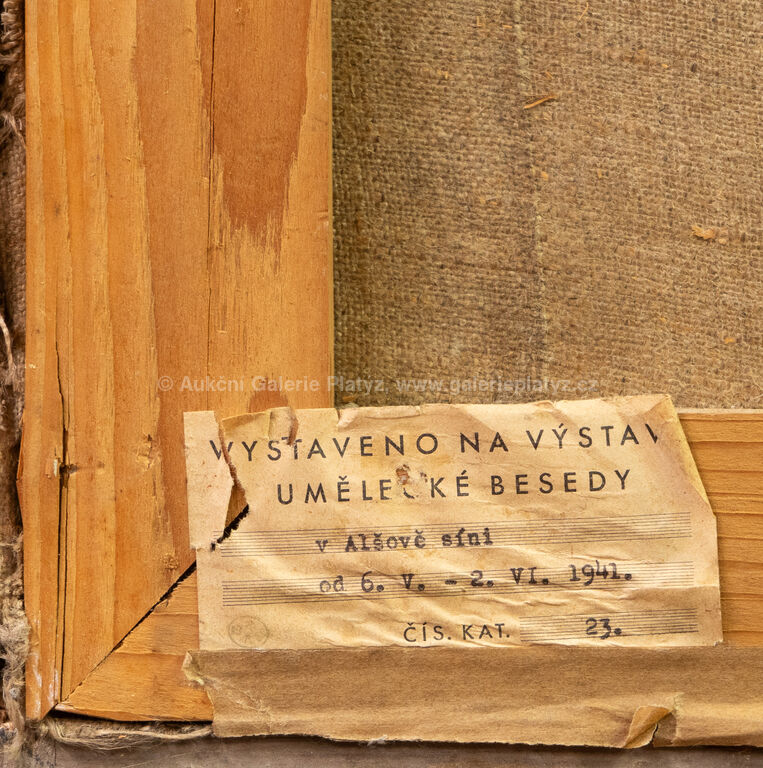 © Aukční Galerie Platýz, www.galerieplatyz.cz
VYSTAVENO NA VÝSTAV
UMĚLECKÉ BESEDY
v Alšově síni
od 6. V. - 2. VI. 1941.
ČÍS. KAT. 23.